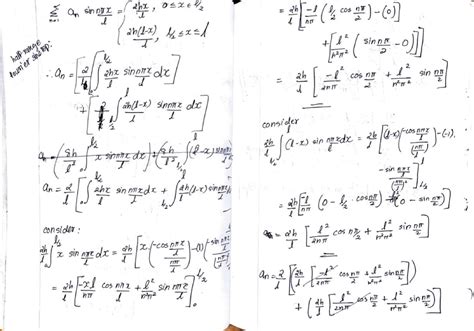 ∞
Σ aₙ sin nπx/l = { 2hx/l , 0 ≤ x ≤ l/2
n=1
2h(l-x)/l , l/2 ≤ x ≤ l
half-range
fourier
∴ aₙ = [ 2/l ∫₀^{l/2} 2hx/l sin nπx/l dx ]
+ [ 2/l ∫_{l/2}^{l} 2h(l-x)/l sin nπx/l dx ]
aₙ = 2/l [ ∫₀^{l/2} 2hx/l sin nπx/l dx + ∫_{l/2}^{l} 2h(l-x) sin nπx/l
consider :
2h/l ∫₀^{l/2} x sin nπx/l dx = 2h/l [ x (-cos nπx/l / nπ/l) -(1) (-sin nπx/l
= 2h/l [ -xl/nπ cos nπx/l + l²/n²π² sin nπx/l ]₀^{l/2}
= 2h/l [ -l/nπ ( l/2 cos nπ/2 ) - (0) ]
+ [ l²/n²π² ( sin nπ/2 - 0 ) ]
= 2h/l [ -l²/2nπ cos nπ/2 + l²/n²π² sin nπ/2 ]
consider
2h/l ∫_{l/2}^{l} (l-x) sin nπx/l dx = 2h/l [ (l-x) (-cos nπx/l / nπ/l) - (-1)
= 2h/l [ -l/nπ ( 0 - l/2 cos nπ/2 )
= 2h/l [ l²/2nπ cos nπ/2 + l²/n²π² sin nπ/2 ]
aₙ = 2/l [ ( 2h/l [ -l²/2nπ cos nπ/2 + l²/n²π² sin nπ/2 ] )
+ ( 2h/l [ l²/2nπ cos nπ/2 + l²/n²π² sin nπ/2 ] )